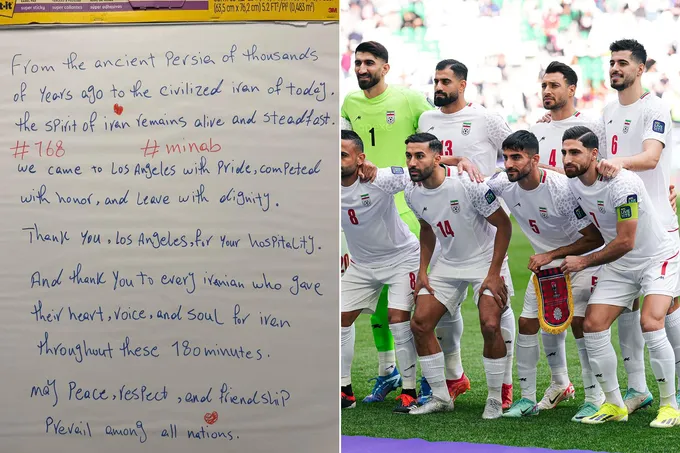 super sticky
(63,5 cm x 76,2 cm) 5.2 FT²/PF (0,483 m²)
From the ancient Persia of thousands
of years ago to the civilized iran of today.
the spirit of iran remains alive and steadfast.
#168 #minab
we came to Los Angeles with Pride, competed
with honor, and Leave with dignity.
Thank You, Los Angeles, for Your hospitality.
And thank You to every iranian who gave
their heart, voice, and soul for iran
throughout these 180 minutes.
may Peace, respect, and friendship
Prevail among all nations.
1
13
4
6
8
14
5
7